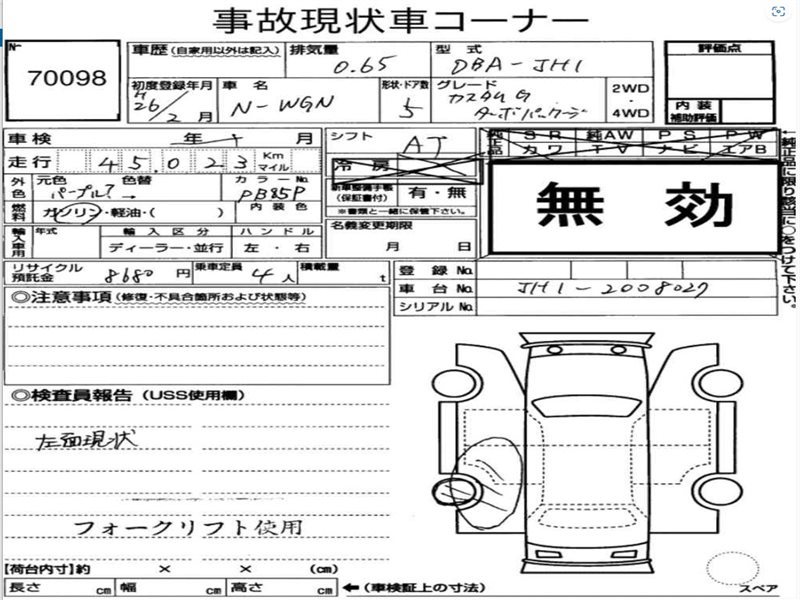 事故現状車コーナー
No 70098
車歴 (自家用以外は記入) 排気量 0.65 型式 DBA-JH1
初度登録年月 H 26/2月 車名 N-WGN 形状・ドア数 5 グレード カスタムG ターボパッケージ 2WD・4WD
評価点
内装補助評価
車検 年 月 シフト AT
純正品 SR 純AW PS PW
カワ TV ナビ エアB
走行 45,023 Km マイル 冷房
外色 元色 パープル? 色替 → カラーNo. PB85P
新車整備手帳(保証書付) 有・無
※書類と一緒に保管下さい。
無効
燃料 ガソリン・軽油・( ) 内装色
名義変更期限 月 日
輸入車用 年式 輸入区分 ディーラー・並行 ハンドル 左・右
純正品に限り該当に○をつけて下さい。
リサイクル預託金 8680円 乗車定員 4人 積載量 t
登録 No.
車台 No. JH1-2008027
シリアル No.
◎注意事項(修復・不具合箇所および状態等)
◎検査員報告(USS使用欄)
左面現状
フォークリフト使用
【荷台内寸】約 × × (cm)
長さ cm 幅 cm 高さ cm ←(車検証上の寸法)
スペア